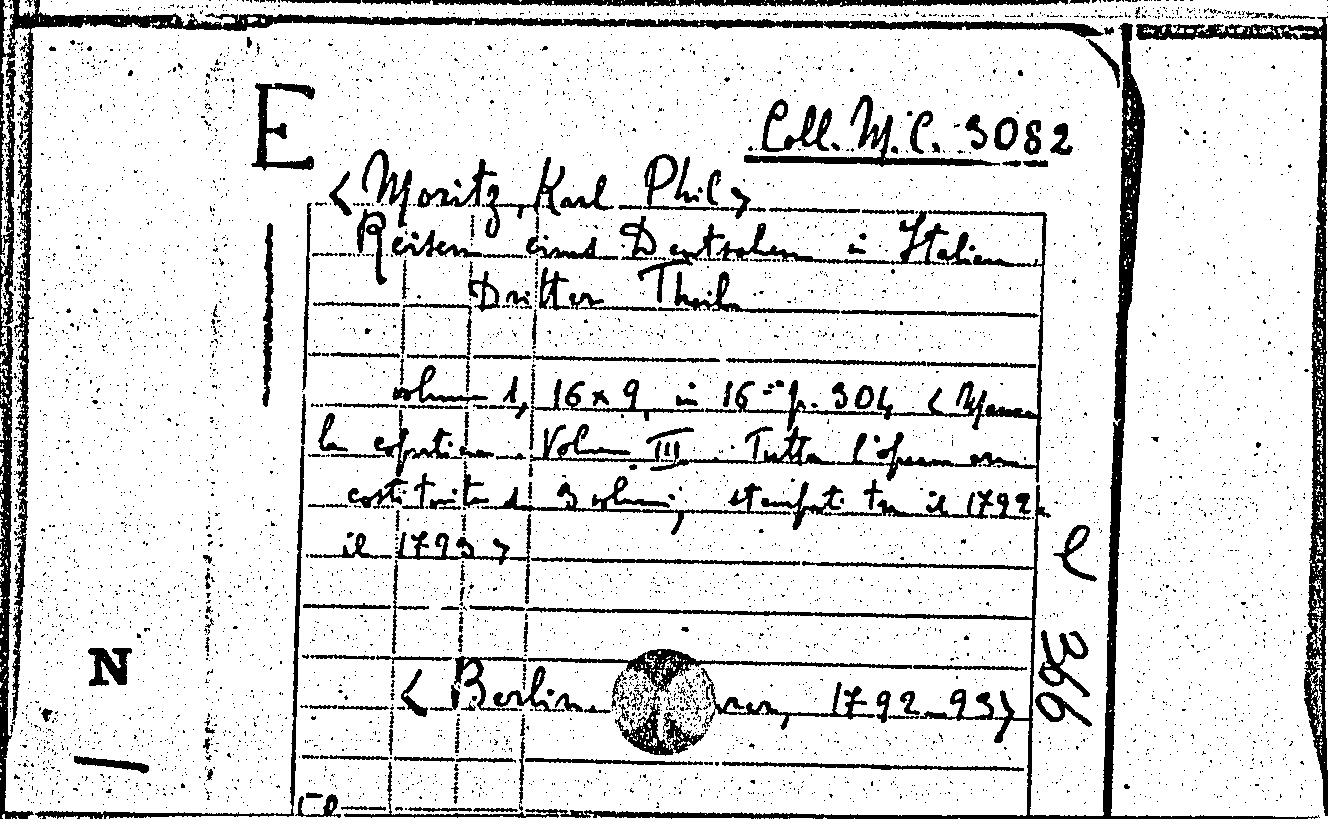 E
Coll. M.C. 3082
< Moritz, Karl Phil >
Reisen eines Deutschen in Italien
Dritter Theil
volume 1, 16 x 9, in 16° p. 304 < Manca
la copertina. Volume III. Tutta l'opera era
costituita da 3 volumi, stampati tra il 1792 e
il 1793 >
< Berlin 1792-93 >
e 366
N